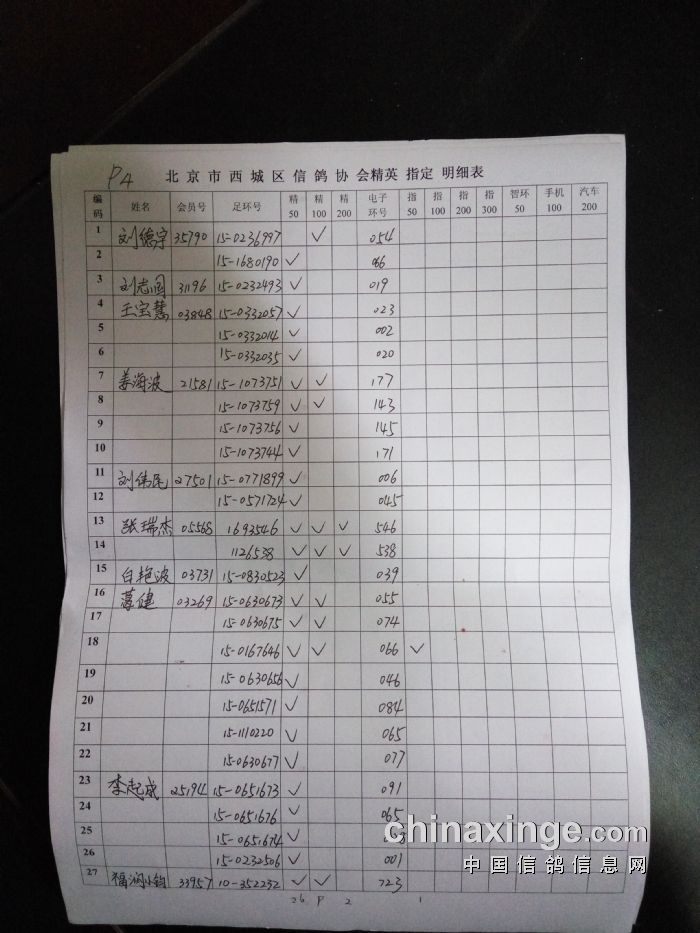 P4 北京市西城区信鸽协会精英 指定 明细表
编码 姓名 会员号 足环号 精50 精100 精200 电子环号 指50 指100 指200 指300 智环50 手机100 汽车200
1 刘德宇 35790 15-0236997 ✓ 054
2 15-1680190 ✓ 086
3 刘志国 31196 15-0232493 ✓ 019
4 王宝慧 03848 15-0332057 ✓ 023
5 15-0332014 ✓ 002
6 15-0332035 ✓ 020
7 姜海波 21581 15-1073751 ✓ ✓ 177
8 15-1073759 ✓ ✓ 143
9 15-1073756 ✓ 145
10 15-1073744 ✓ 171
11 刘伟民 27501 15-0771899 ✓ 006
12 15-0571724 ✓ 045
13 张瑞杰 05568 1693546 ✓ ✓ ✓ 546
14 1126538 ✓ ✓ ✓ 538
15 白艳波 03731 15-0830523 ✓ 039
16 健 03269 15-0630673 ✓ ✓ 055
17 15-0630675 ✓ ✓ 074
18 15-0167646 ✓ ✓ 066 ✓
19 15-0630656 ✓ 046
20 15-0651571 ✓ 084
21 15-1110220 ✓ 065
22 15-0630677 ✓ 077
23 李起成 25194 15-0651673 ✓ 091
24 15-0651676 ✓ 065
25 15-0651674 ✓
26 15-0232506 ✓ 001
27 福润小钧 33957 10-352232 ✓ ✓ 723
26 P 2 1
chinaxinge.com
中国信鸽信息网